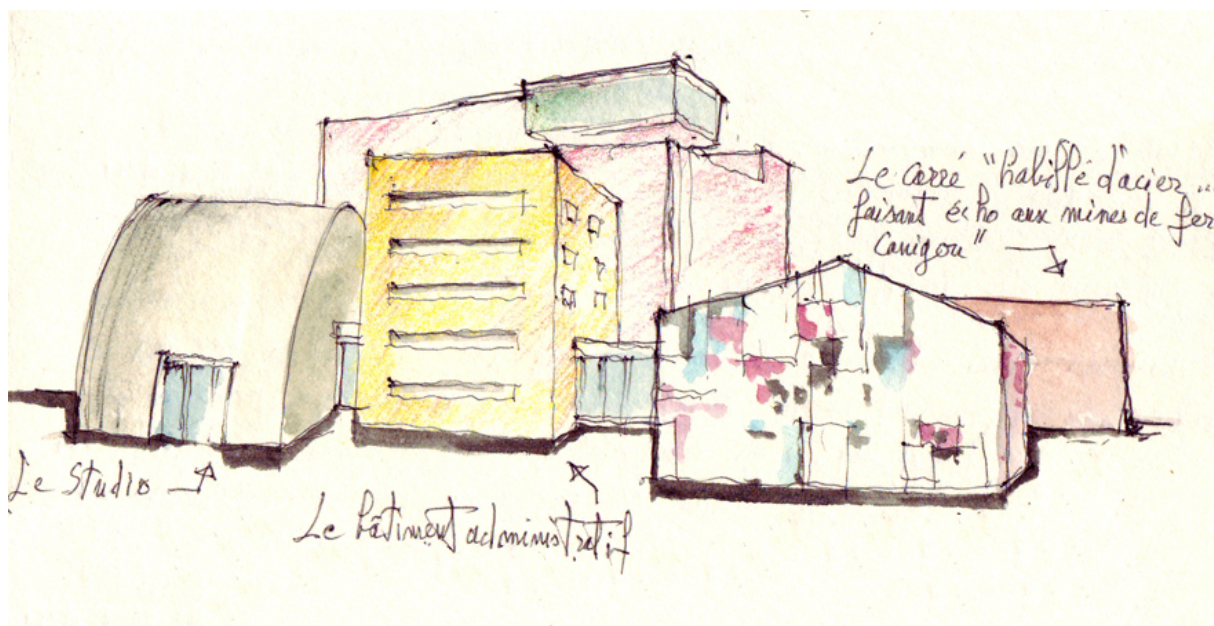 Le carré "habillé d'acier...
faisant écho aux mines de fer
Canigou"
Le Studio
Le bâtiment administratif